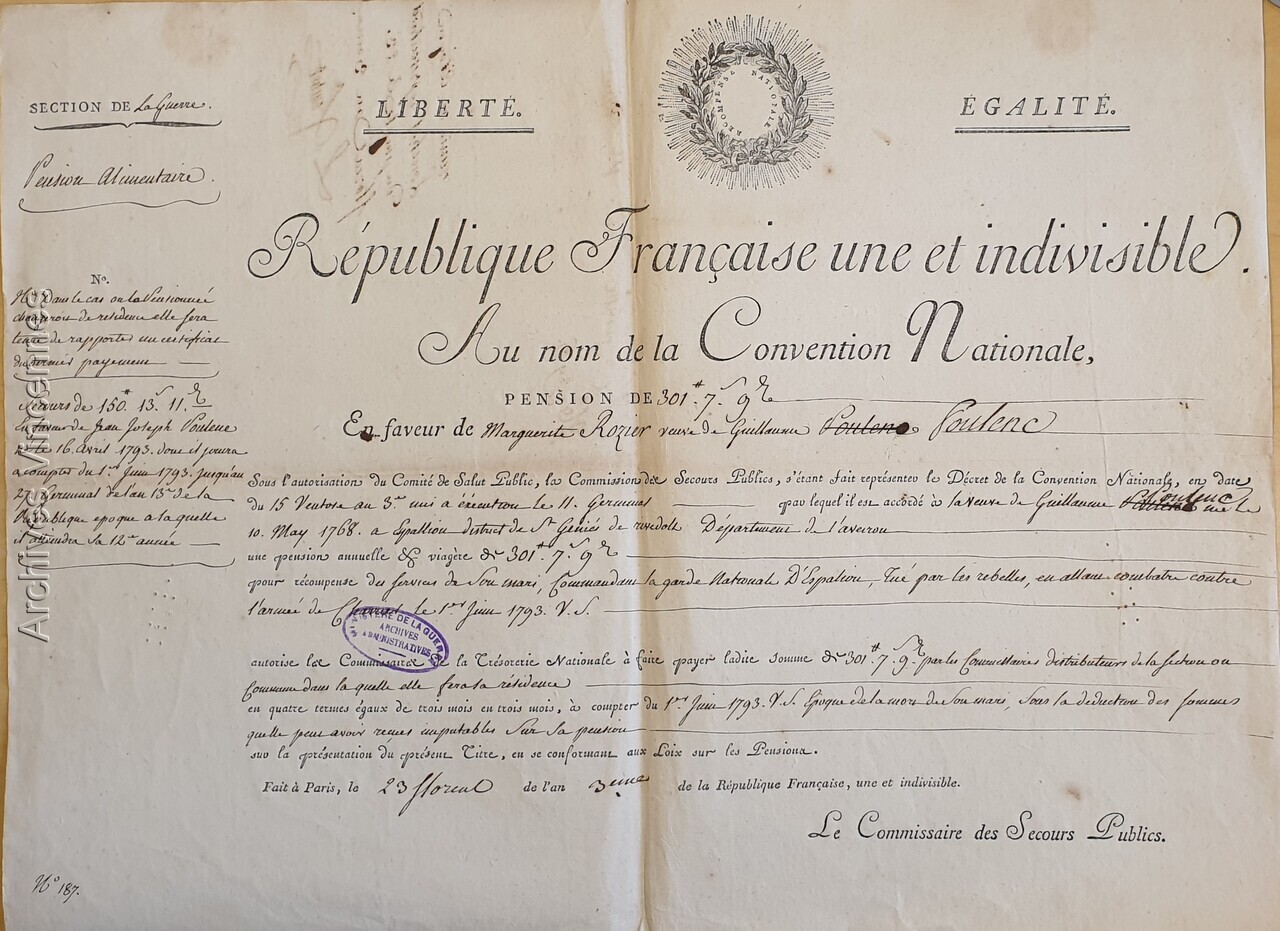 SECTION DE La Guerre.
LIBERTÉ.
RECOMPENSE NATIONALE
ÉGALITÉ.
Pension Alimentaire.
République Française une et indivisible.
Au nom de la Convention Nationale,
PENSION DE 301# 7s 9d
En faveur de Marguerite Rozier veuve de Guillaume Poulenc Poulenc
No.
Nta Dans le cas ou la Pensionnée
changeroit de residence elle sera
tenue de rapporter un certificat
du dernier payement
Secours de 150# 13s 11d
En faveur de Jean Joseph Poulenc
né le 16 avril 1793. dont il jouira
a compter du 1er Juin 1793. jusqu'au
27 Germinal de l'an 13e de la
République epoque a laquelle
il atteindra sa 12e année
Sous l'autorisation du Comité de Salut Public, la Commission des Secours Publics, s'étant fait représenter le Décret de la Convention Nationale, en date
du 15 Ventose an 3me mis a éxécution le 11. Germinal par lequel il est accordé à la veuve de Guillaume Poulenc Poulenc né le
10. May 1768. a Espallion district de St Géniés de rivedolt Département de l'aveiron
une pension annuelle & viagère de 301# 7s 9d
pour récompense des Services de Son mari, Commandant la garde Nationale D'Espalion, Tué par les rebelles, en allant combatre contre
l'armée de Charrié le 1er Juin 1793. V. S.
MINISTÈRE DE LA GUERRE
ARCHIVES
ADMINISTRATIVES
autorise les Commissaires de la Trésorerie Nationale à faire payer ladite somme de 301# 7s 9d par les Commissaires distributeurs de la section ou
Commune dans laquelle elle fera sa résidence
en quatre termes égaux de trois mois en trois mois, à compter du 1er Juin 1793. V. S. Epoque de la mort de Son mari, Sous la déduction des sommes
quelle peut avoir reçues imputables Sur Sa pension
sur la présentation du présent Titre, en se conformant aux Loix sur les Pensions.
Fait à Paris, le 23 floreal de l'an 3eme de la République Française, une et indivisible.
Le Commissaire des Secours Publics.
No 187.
Archives Vincennes